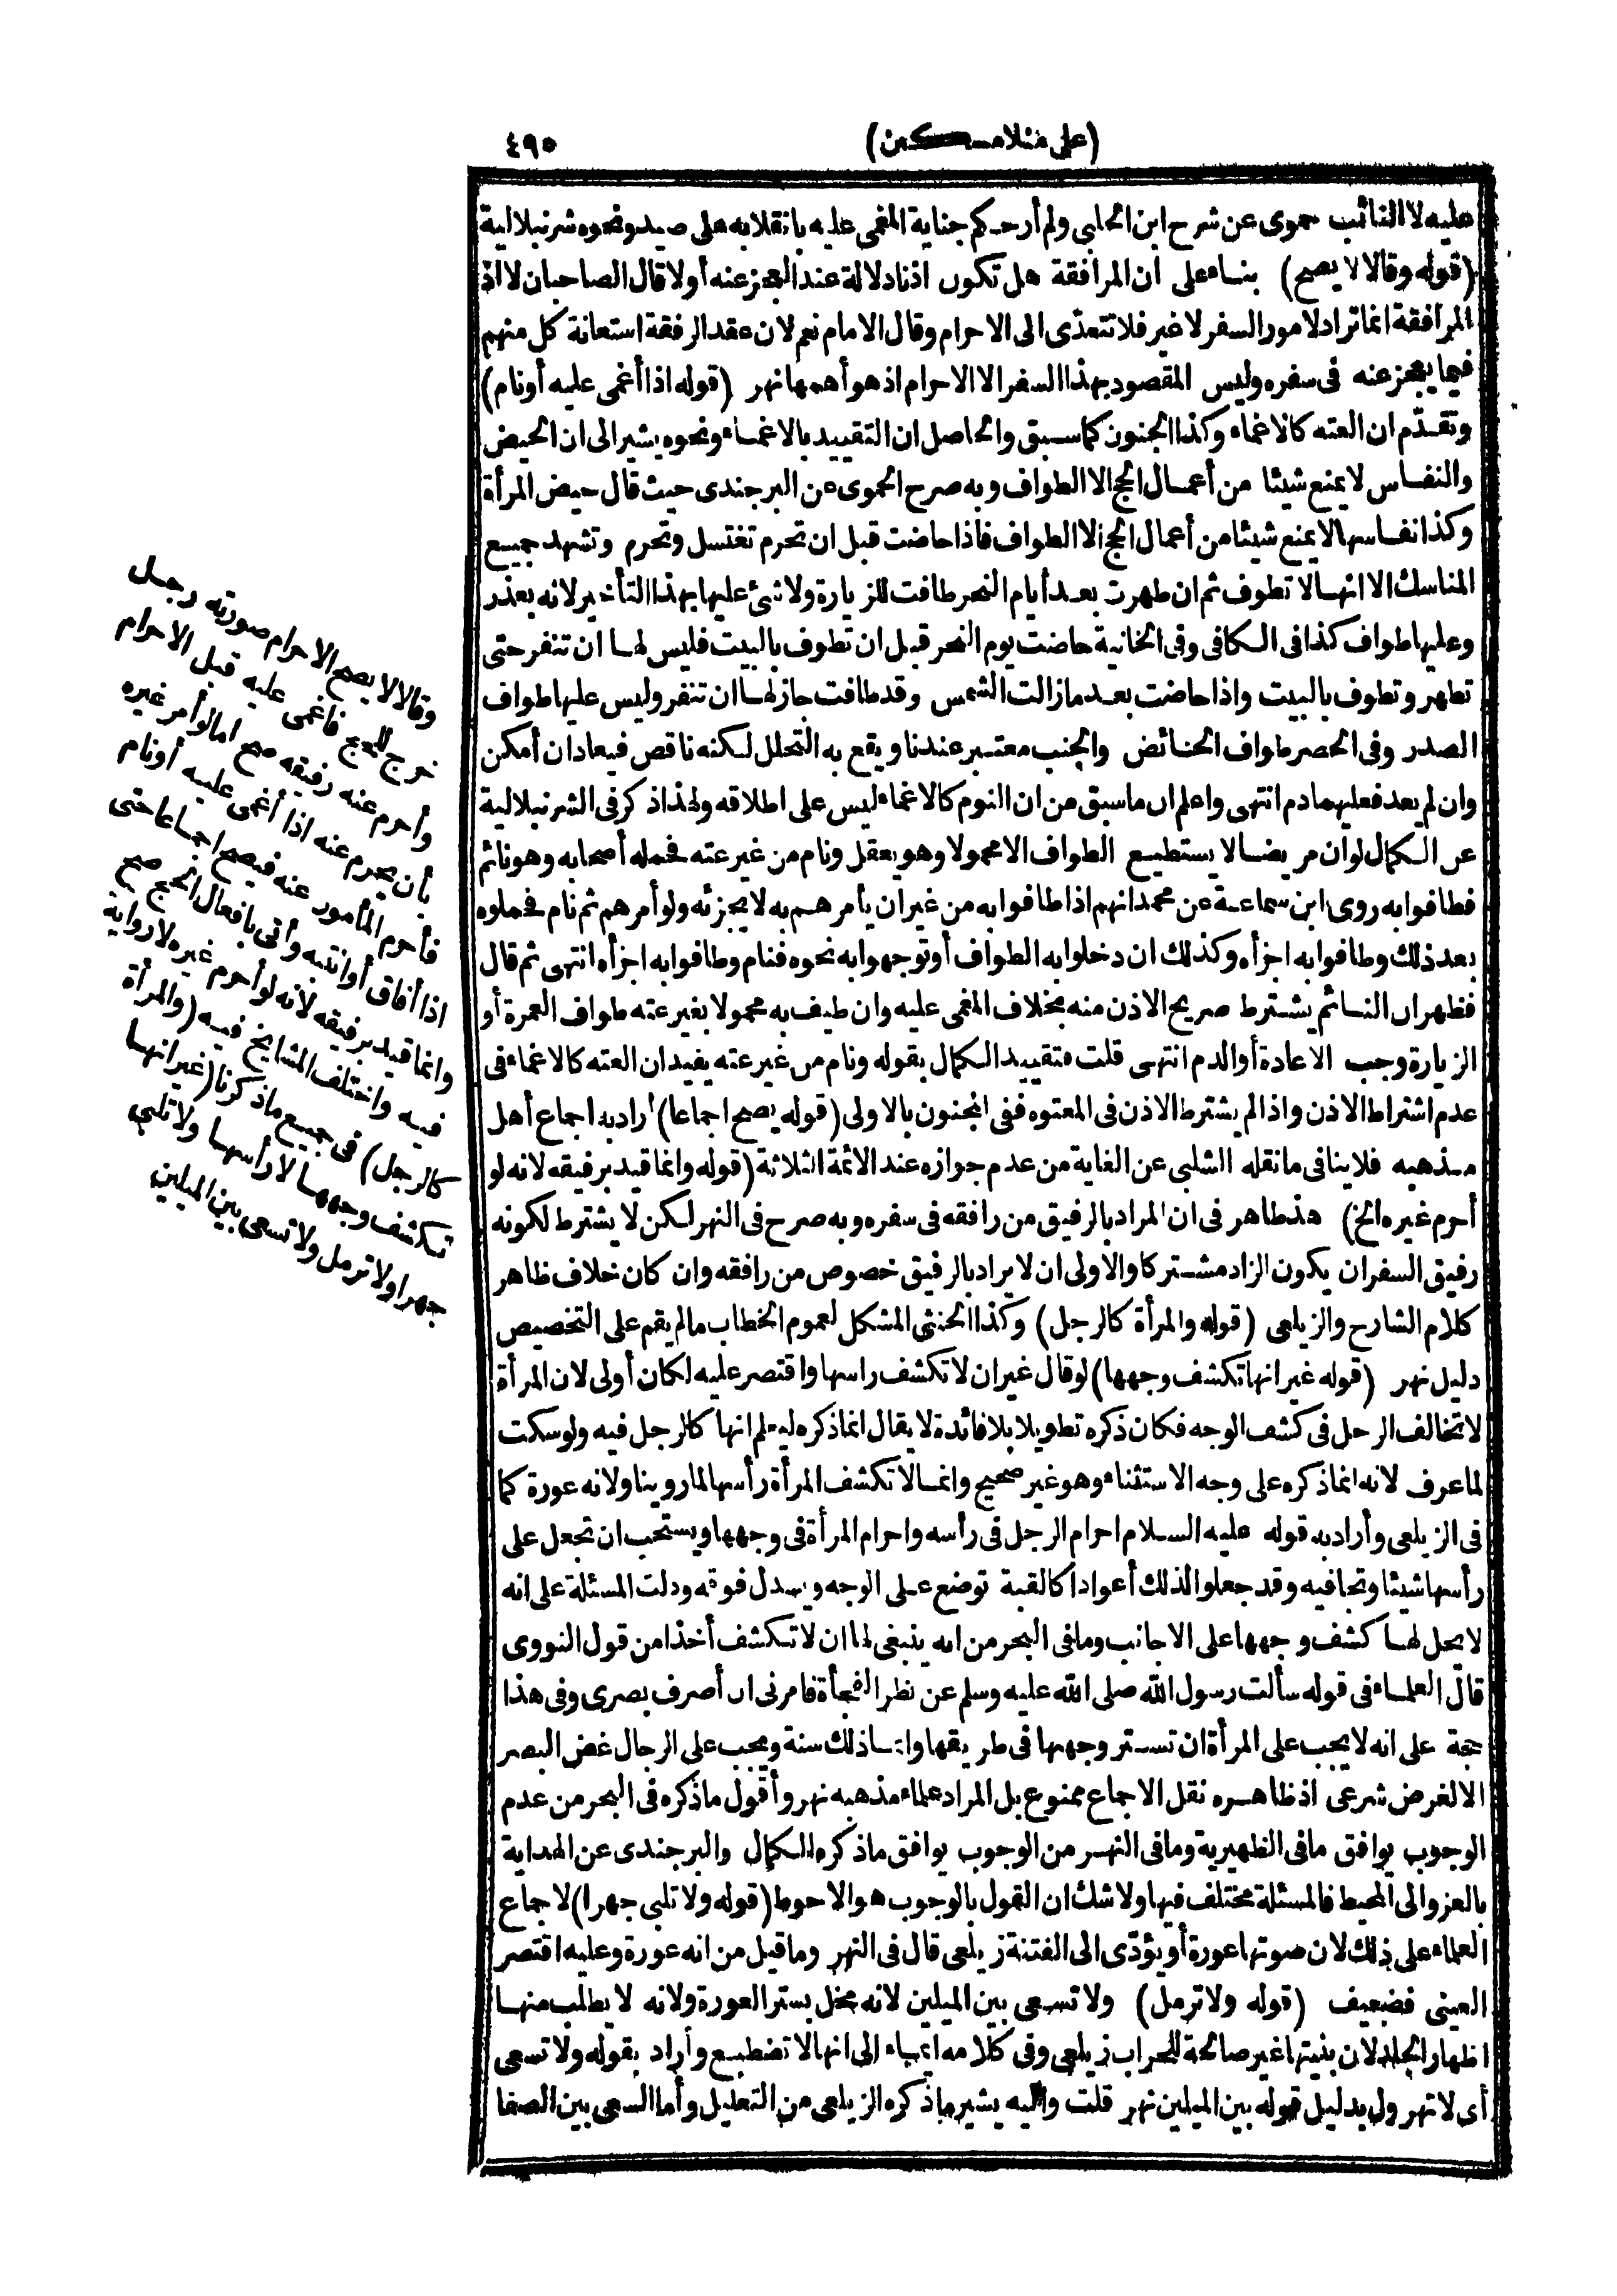 (على منلا مسكين)
٤٩٥
عليه لا النائب حموى عن شرح ابن الحلبى ولم أر حكم جناية المغمى عليه بانقلابه على صيد ونحوه شرنبلالية
(قوله وقالا لا يصح) بناء على ان المرافقة هل تكون اذنا دلالة عند العجز عنه أولا قال الصاحبان لا اذ
المرافقة انما تراد لامور السفر لا غير فلا تتعدّى الى الاحرام وقال الامام نعم لان عقد الرفقة استعانة كل منهم
فيما يعجز عنه فى سفره وليس المقصود بهذا السفر الا الاحرام اذ هو أهمها نهر (قوله اذا أغمى عليه أو نام)
وتقدّم ان العته كالاغماء وكذا الجنون كما سبق والحاصل ان التقييد بالاغماء ونحوه يشير الى ان الحيض
والنفاس لا يمنع شيئا من أعمال الحج الا الطواف وبه صرح الحموى عن البرجندى حيث قال حيض المرأة
وكذا نفاسها لا يمنع شيئا من أعمال الحج الا الطواف فاذا حاضت قبل ان تحرم تغتسل وتحرم وتشهد جميع
المناسك الا انها لا تطوف ثم ان طهرت بعد أيام النحر طافت للزيارة ولا شئ عليها بهذا التأخير لانه بعذر
وعليها طواف كذا فى الكافى وفى الخانية حاضت يوم النحر قبل ان تطوف بالبيت فليس لها ان تنفر حتى
تطهر وتطوف بالبيت واذا حاضت بعد ما زالت الشمس وقد طافت جاز لها ان تنفر وليس عليها طواف
الصدر وفى الحصر طواف الحائض والجنب معتبر عندنا ويقع به التحلل لكنه ناقص فيعاد ان أمكن
وان لم يعد فعليهما دم انتهى واعلم ان ما سبق من ان النوم كالاغماء ليس على اطلاقه ولهذا ذكر فى الشرنبلالية
عن الكمال لو ان مريضا لا يستطيع الطواف الا محمولا وهو يعقل ونام من غير عته فحمله أصحابه وهو نائم
فطافوا به روى ابن سماعة عن محمد انهم اذا طافوا به من غير ان يأمرهم به لا يجزئه ولو أمرهم ثم نام فحملوه
بعد ذلك وطافوا به اجزأه وكذلك ان دخلوا به الطواف أو توجهوا به نحوه فنام وطافوا به اجزأه انتهى ثم قال
فظهر ان النائم يشترط صريح الاذن منه بخلاف المغمى عليه وان طيف به محمولا بغير عته طواف العمرة أو
الزيارة وجب الاعادة أو الدم انتهى قلت فتقييد الكمال بقوله ونام من غير عته يفيد ان العته كالاغماء فى
عدم اشتراط الاذن واذا لم يشترط الاذن فى المعتوه ففى المجنون بالاولى (قوله يصح اجماعا) أراد به اجماع أهل
مذهبه فلا ينافى ما نقله الشلبى عن الغاية من عدم جوازه عند الائمة الثلاثة (قوله وانما قيد برفيقه لانه لو
أحرم غيره الخ) هذا ظاهر فى ان المراد بالرفيق من رافقه فى سفره وبه صرح فى النهر لكن لا يشترط لكونه
رفيق السفر ان يكون الزاد مشتركا والاولى ان لا يراد بالرفيق خصوص من رافقه وان كان خلاف ظاهر
كلام الشارح والزيلعى (قوله والمرأة كالرجل) وكذا الخنثى المشكل لعموم الخطاب ما لم يقم على التخصيص
دليل نهر (قوله غير انها تكشف وجهها) لو قال غير ان لا تكشف راسها واقتصر عليه لكان أولى لان المرأة
لا تخالف الرجل فى كشف الوجه فكان ذكره تطويلا بلا فائدة لا يقال انما ذكره ليعلم انها كالرجل فيه ولو سكت
لما عرف لانه انما ذكره على وجه الاستثناء وهو غير صحيح وانما لا تكشف المرأة رأسها لما روينا ولانه عورة كما
فى الزيلعى وأراد به قوله عليه السلام احرام الرجل فى رأسه واحرام المرأة فى وجهها ويستحب ان تجعل على
رأسها شيئا وتجافيه وقد جعلوا لذلك أعوادا كالقبة توضع على الوجه ويسدل فوقه ودلت المسئلة على انه
لا يحل لها كشف وجهها على الاجانب وما فى البحر من انه ينبغى لها ان لا تكشف أخذا من قول النووى
قال العلماء فى قوله سألت رسول الله صلى الله عليه وسلم عن نظر الفجأة فامرنى ان أصرف بصرى وفى هذا
حجة على انه لا يجب على المرأة ان تستر وجهها فى طريقها وانما ذلك سنة ويجب على الرجال غض البصر
الا لغرض شرعى اذ ظاهره نقل الاجماع ممنوع بل المراد علماء مذهبه نهر وأقول ما ذكره فى البحر من عدم
الوجوب يوافق ما فى الظهيرية وما فى النهر من الوجوب يوافق ما ذكره الكمال والبرجندى عن الهداية
بالعزو الى المحيط فالمسئلة مختلف فيها ولا شك ان القول بالوجوب هو الاحوط (قوله ولا تلبى جهرا) لاجماع
العلماء على ذلك لان صوتها عورة أو يؤدّى الى الفتنة زيلعى قال فى النهر وما قيل من انه عورة وعليه اقتصر
العينى فضعيف (قوله ولا ترمل) ولا تسعى بين الميلين لانه مخل بستر العورة ولانه لا يطلب منها
اظهار الجلد لان بنيتها غير صالحة للحراب زيلعى وفى كلامه ايماء الى انها لا تضطبع وأراد بقوله ولا تسعى
أى لا تهرول بدليل قوله بين الميلين نهر قلت واليه يشير ما ذكره الزيلعى من التعليل وأما السعى بين الصفا
وقالا لا يصح الاحرام صورته رجل
خرج للحج فاغمى عليه قبل الاحرام
وأحرم عنه رفيقه صح اما لو أمر غيره
بأن يحرم عنه اذا أغمى عليه أو نام
فأحرم المأمور عنه فيصح اجماعا حتى
اذا أفاق أو انتبه وأتى بافعال الحج صح
وانما قيد برفيقه لانه لو أحرم غيره لا رواية
فيه واختلف المشايخ فيه (والمرأة
كالرجل) فى جميع ما ذكرنا (غير انها
تكشف وجهها لا رأسها ولا تلبى
جهرا ولا ترمل ولا تسعى بين الميلين